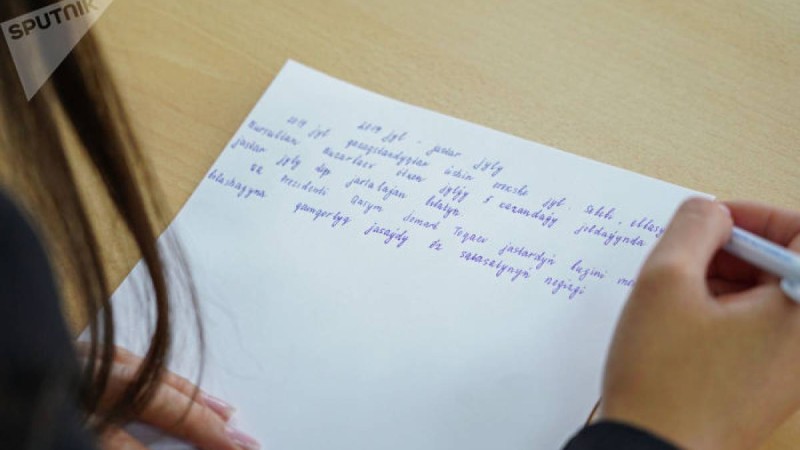 SPUTNIK
2019 jyl - jastar jyly
2019 jyl qazaqstandyqtar úshin erekshe jyl. Sebeb, elbasy
Nursultan Nazarbaev ótken jyldyń 5 joldaýynda
jastar jyly dep jarialaǵan bolatyn.
Al Prezidenti Qasym Jomart Toqaev jastardyń búgini men
bolashaǵyna qamqorlyq jasaýdy óz saiasatynyń negizgi